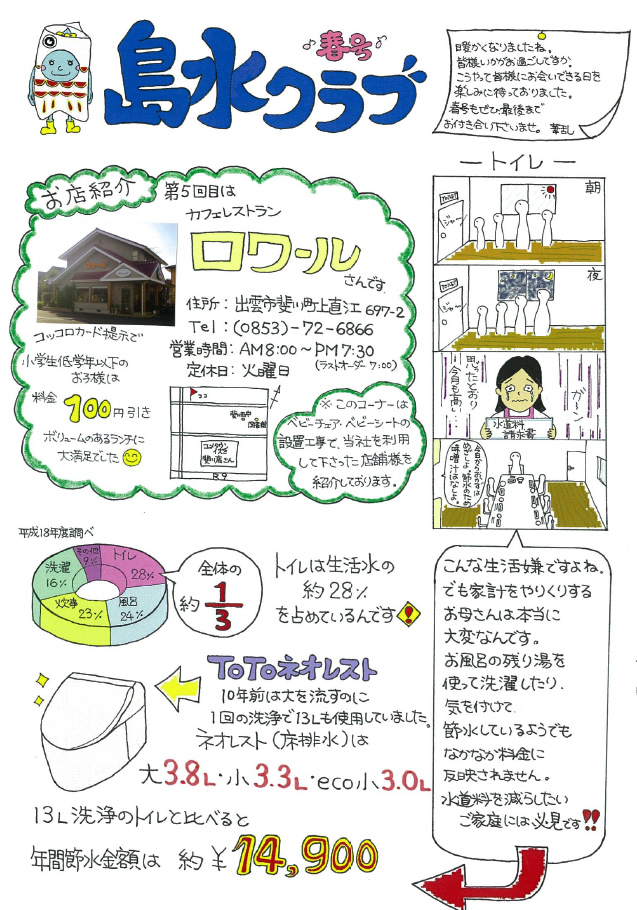 島水クラブ
♪春号♪
暖かくなりましたね。
皆様いかがお過ごしですか。
こうして皆様にお会いできる日を
楽しみに待っておりました。
春号もぜひ最後まで
お付き合い下さいませ。
お店紹介
第5回目は
カフェレストラン
ロワール
さんです
住所：出雲市斐川町上直江697-2
Tel：(0853)-72-6866
営業時間：AM8:00～PM7:30
(ラストオーダー7:00)
定休日：火曜日
コッコロカード提示で
小学生低学年以下の
お子様は
料金100円引き
ボリュームのあるランチに
大満足でした
ココ
図書館
R9
※このコーナーは
ベビーチェア・ベビーシートの
設置工事で、当社を利用
して下さった店舗様を
紹介しております。
ートイレー
朝
TOILET
ジャー
夜
TOILET
ジャー
思ったとおり
今月も高い…
ガーン
水道料
請求書
今日からおかずは
めざしよ。節水のため
味噌汁はなしよ。
平成18年度調べ
トイレ
28%
風呂
24%
炊事
23%
洗濯
16%
その他
9%
全体の
約1/3
トイレは生活水の
約28%
を占めているんです!
TOTOネオレスト
10年前は大を流すのに
1回の洗浄で13Lも使用していました。
ネオレスト(床排水)は
大3.8L・小3.3L・eco小3.0L
13L洗浄のトイレと比べると
年間節水金額は 約¥14,900
こんな生活嫌ですよね。
でも家計をやりくりする
お母さんは本当に
大変なんです。
お風呂の残り湯を
使って洗濯したり、
気を付けて
節水しているようでも
なかなか料金に
反映されません。
水道料を減らしたい
ご家庭には必見です!!